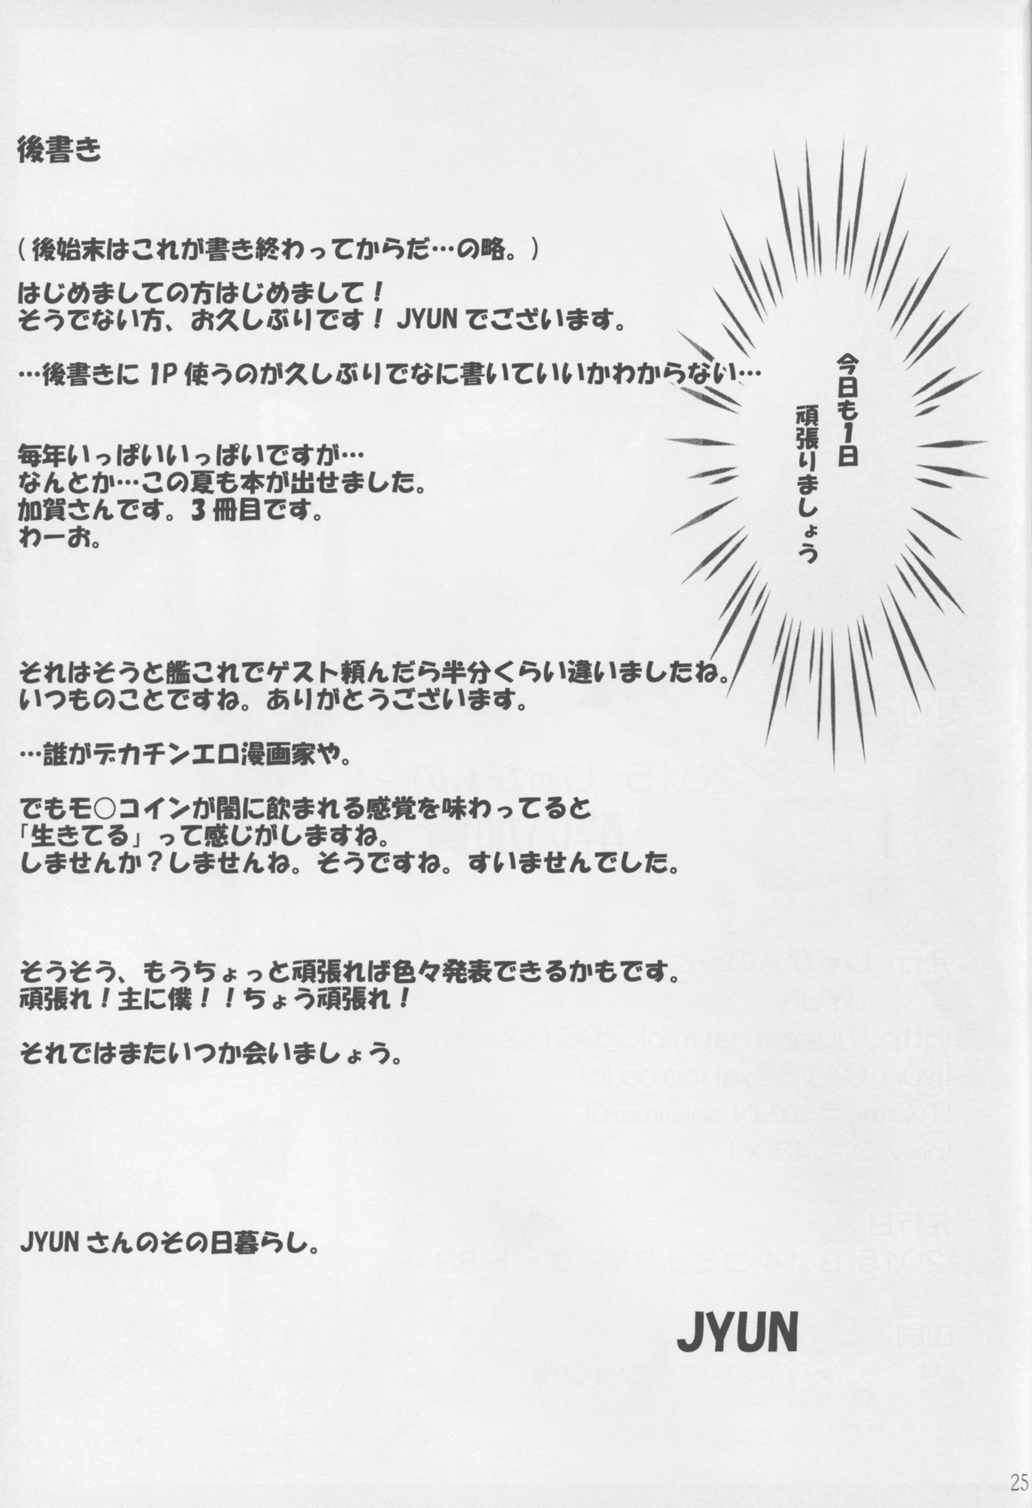 後書き
(後始末はこれが書き終わってからだ…の略。)
はじめましての方はじめまして!
そうでない方、お久しぶりです! JYUNでございます。
…後書きに 1P 使うのが久しぶりでなに書いていいかわからない…
今日も1日
頑張りましょう
毎年いっぱいいっぱいですが…
なんとか…この夏も本が出せました。
加賀さんです。3冊目です。
わーお。
それはそうと艦これでゲスト頼んだら半分くらい違いましたね。
いつものことですね。ありがとうございます。
…誰がデカチンエロ漫画家や。
でもモ○コインが闇に飲まれる感覚を味わってると
「生きてる」って感じがしますね。
しませんか?しませんね。そうですね。すいませんでした。
そうそう、もうちょっと頑張れば色々発表できるかもです。
頑張れ!主に僕!!ちょう頑張れ!
それではまたいつか会いましょう。
JYUNさんのその日暮らし。
JYUN
25